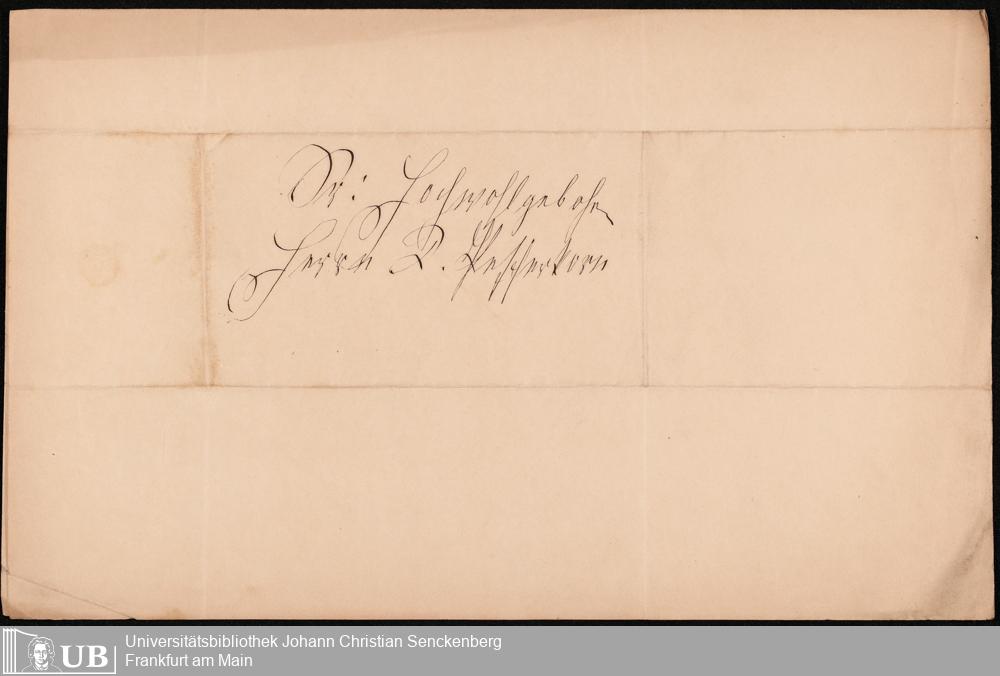 Sr: Hochwohlgebohrn
Herrn D.
UB
Universitätsbibliothek Johann Christian Senckenberg
Frankfurt am Main